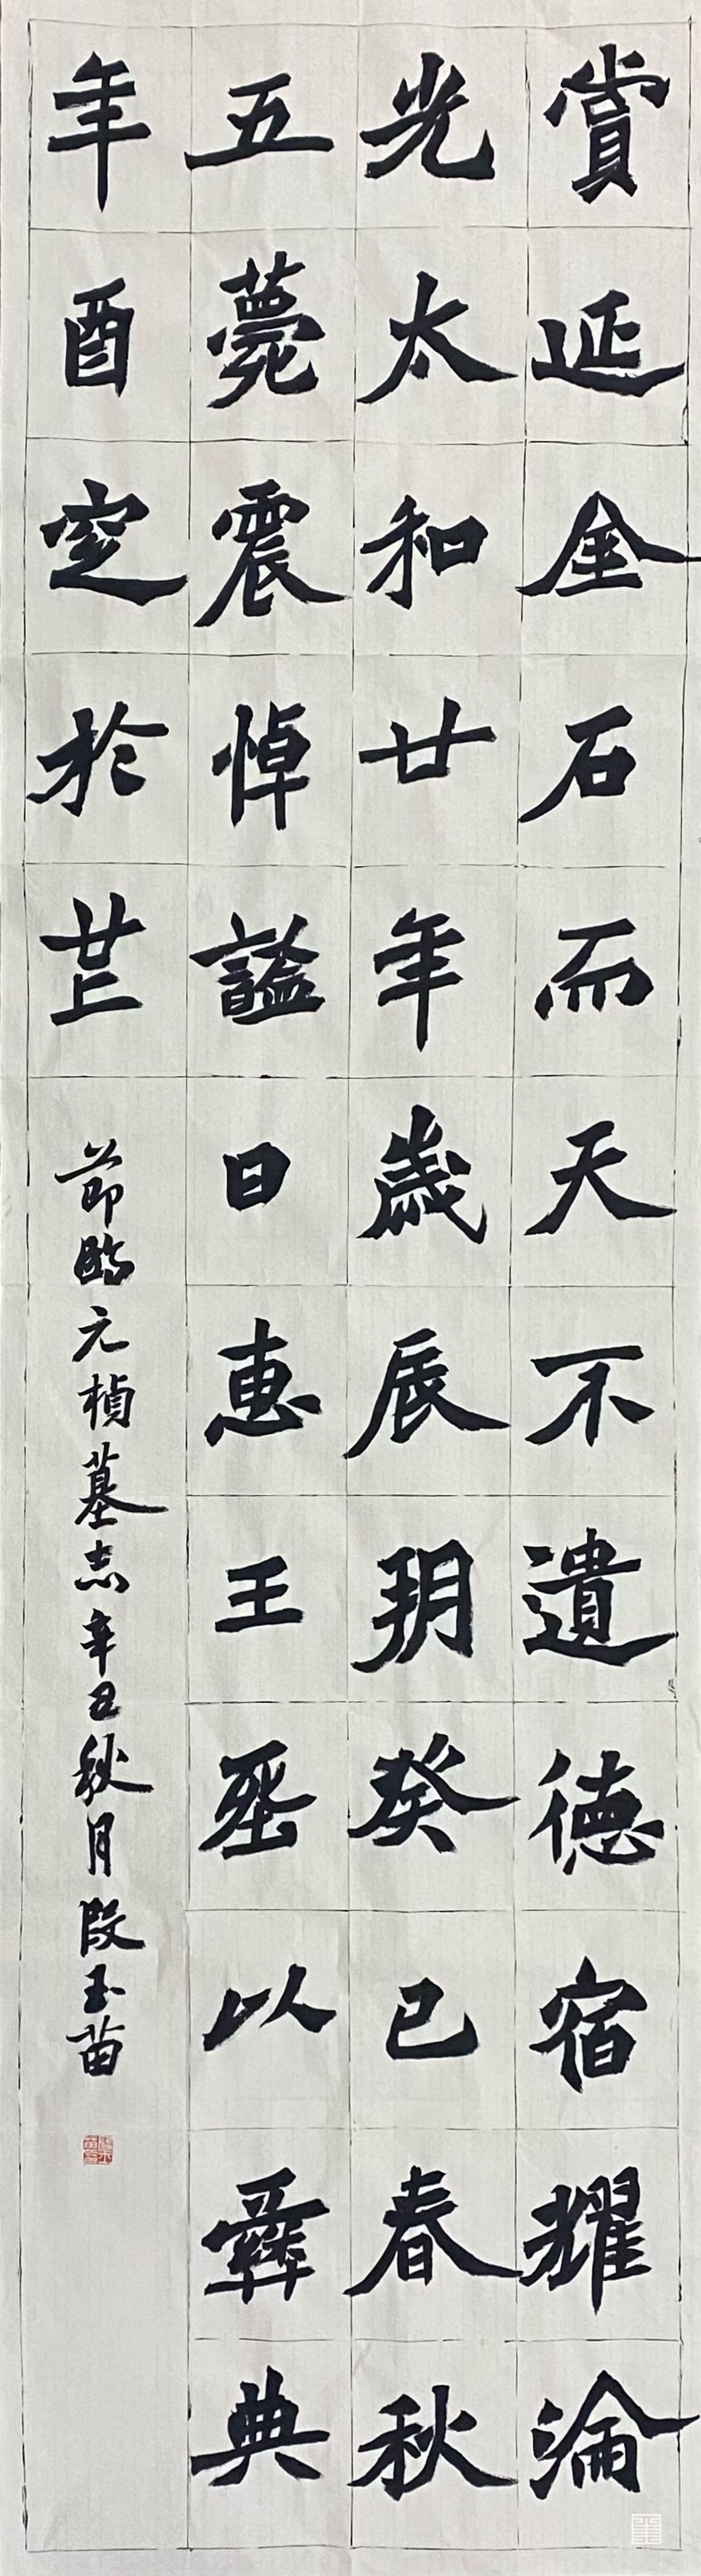 賞延金石而天不遺德宿耀淪
光太和廿年歲辰玥癸巳春秋
五薨震悼諡曰惠王塟以彝典
年酉窆於芒
節臨元楨墓志辛丑秋月段玉苗